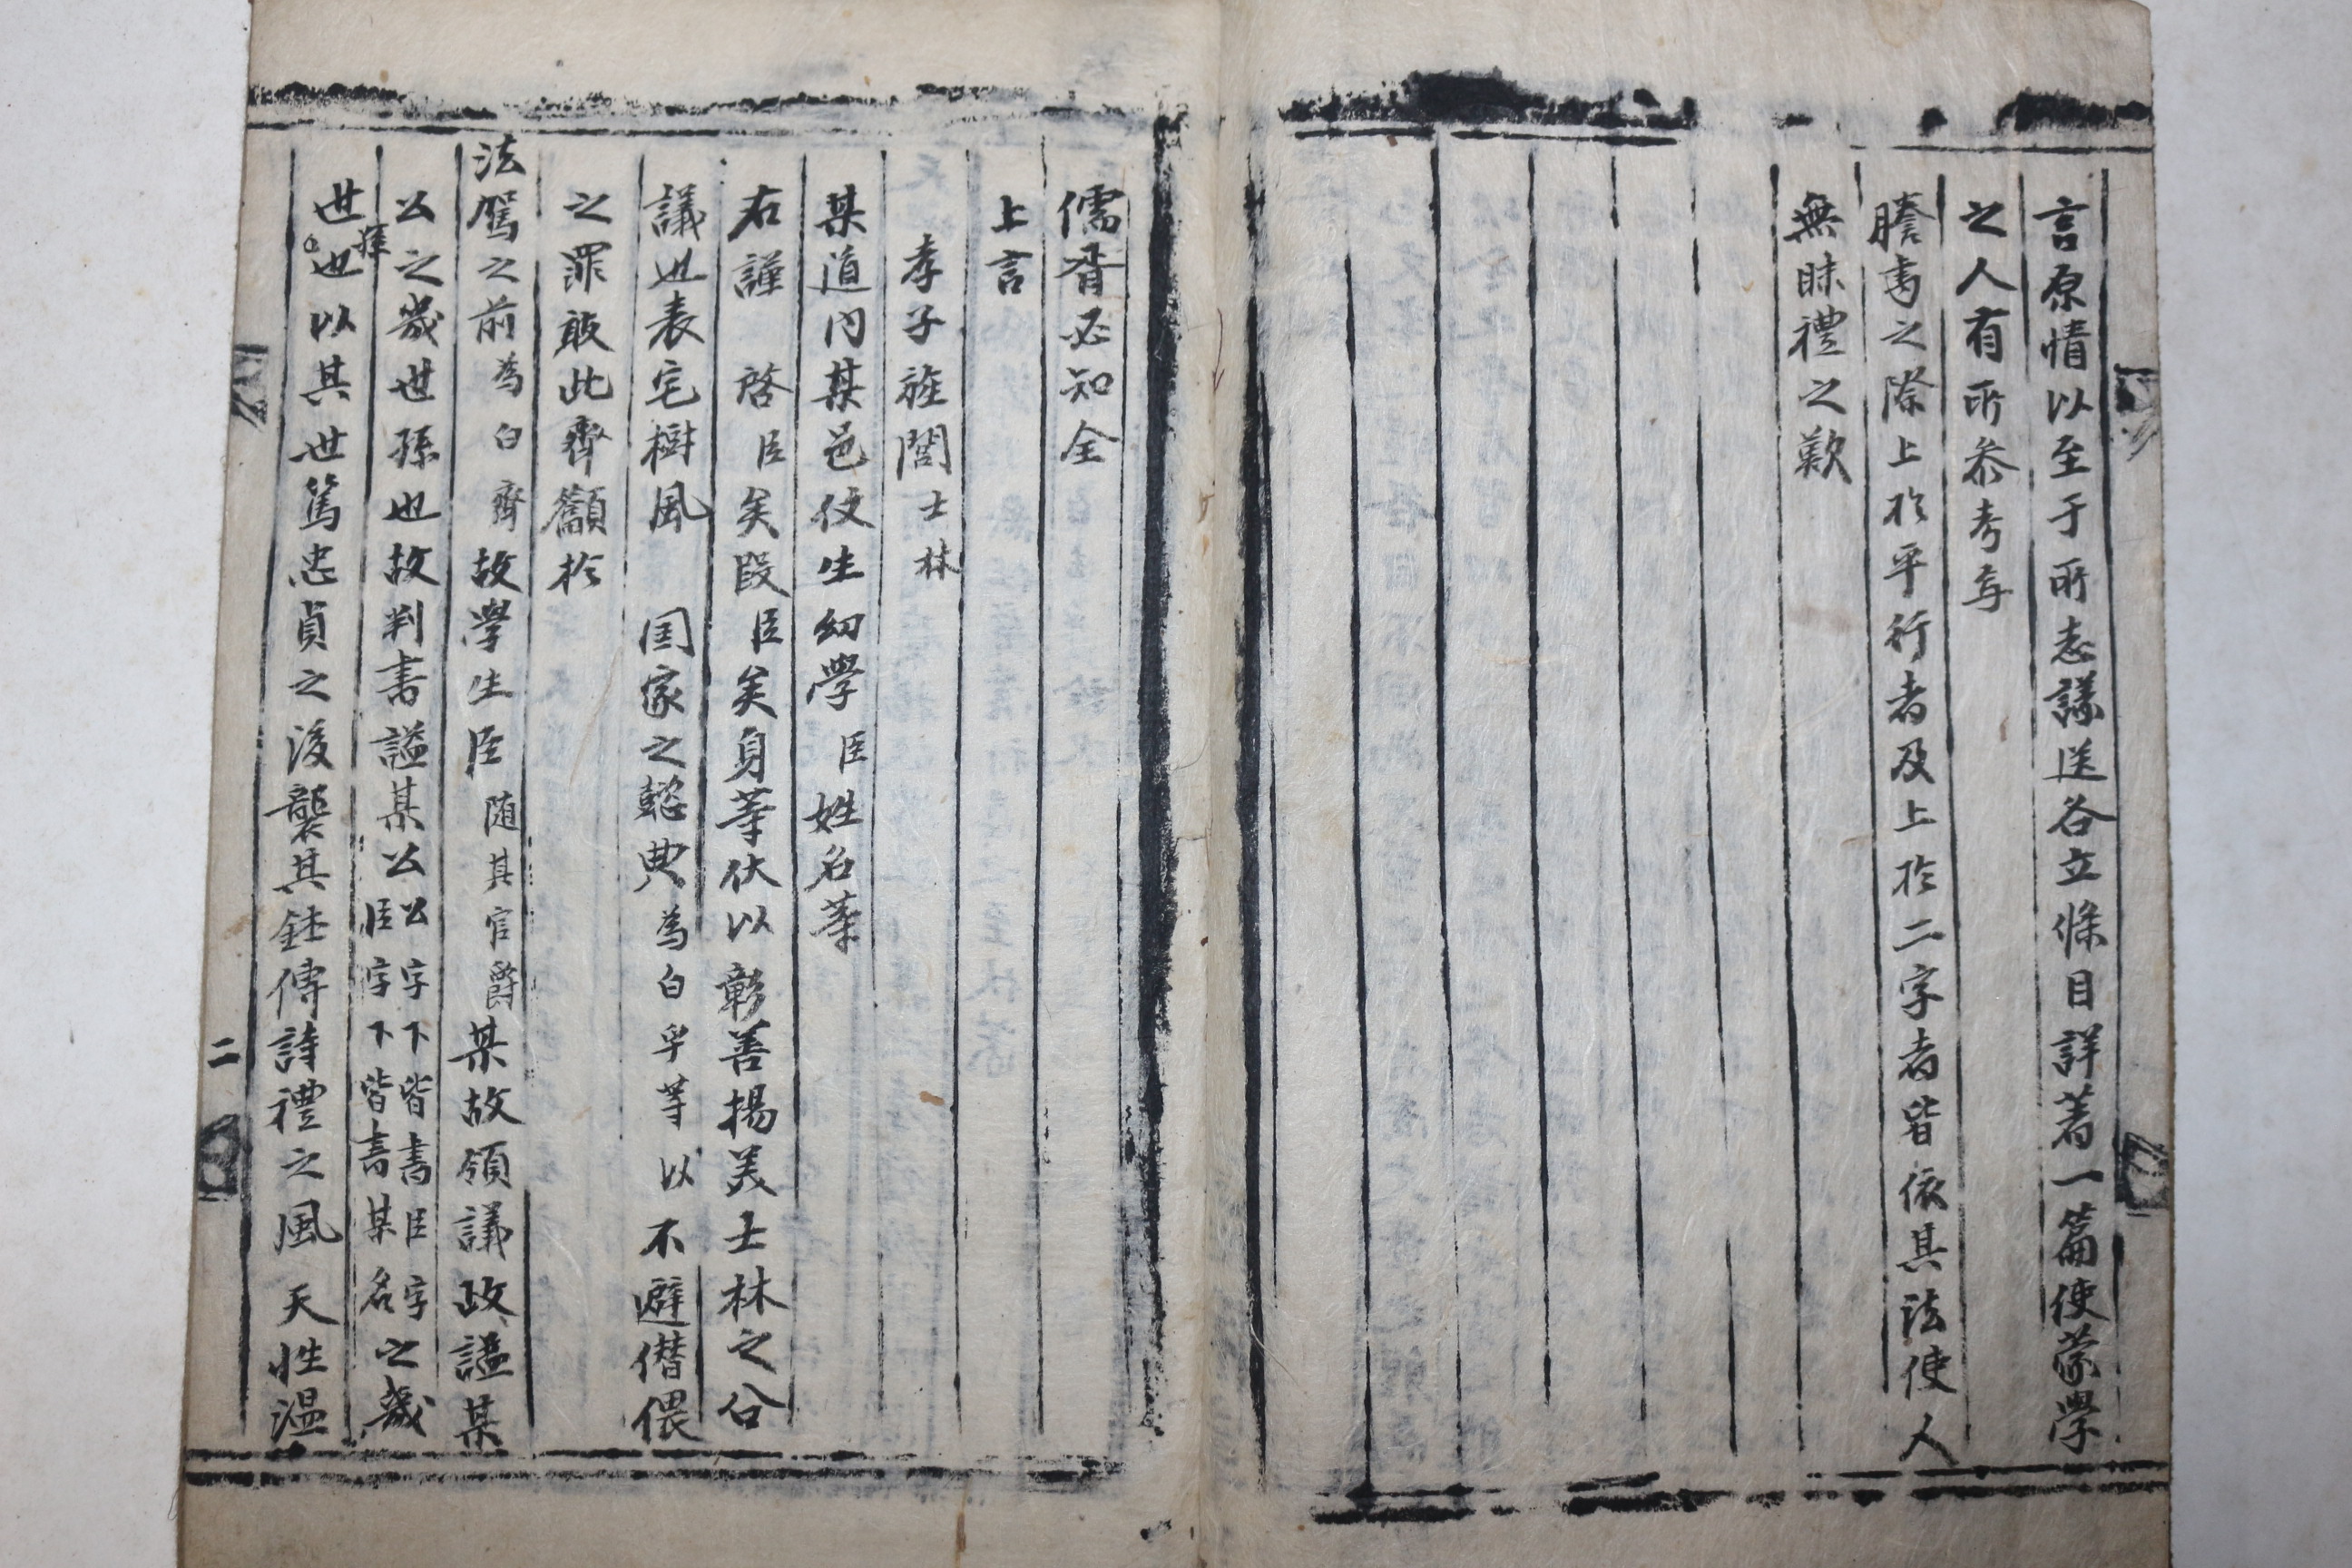 言原情以至于所志議送各立條目詳著一篇使蒙學
之人有所叅考与
謄書之際上於平行者及上於二字者皆依其法使人
無昧禮之歎
儒胥必知全
上言
孝子旌閭士林
某道內某邑伩生幼學臣姓名䓁
右謹 啓臣矣段臣矣身䓁伏以彰善揚美士林之公
議也表宅樹風 国家之懿典為白乎䓁以不避僭偎
之罪敢此齊籲於
法駕之前為白齊故學生臣随其官爵某故領議政諡某
公之幾世孫也故判書諡某公公字下皆書臣字臣字下皆書某名之幾
世孫也以其世篤忠貞之後襲其鉢傳詩禮之風 天性温
二